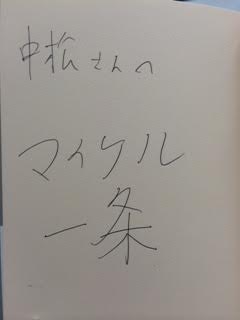 中松さんへ
マイケル
一条